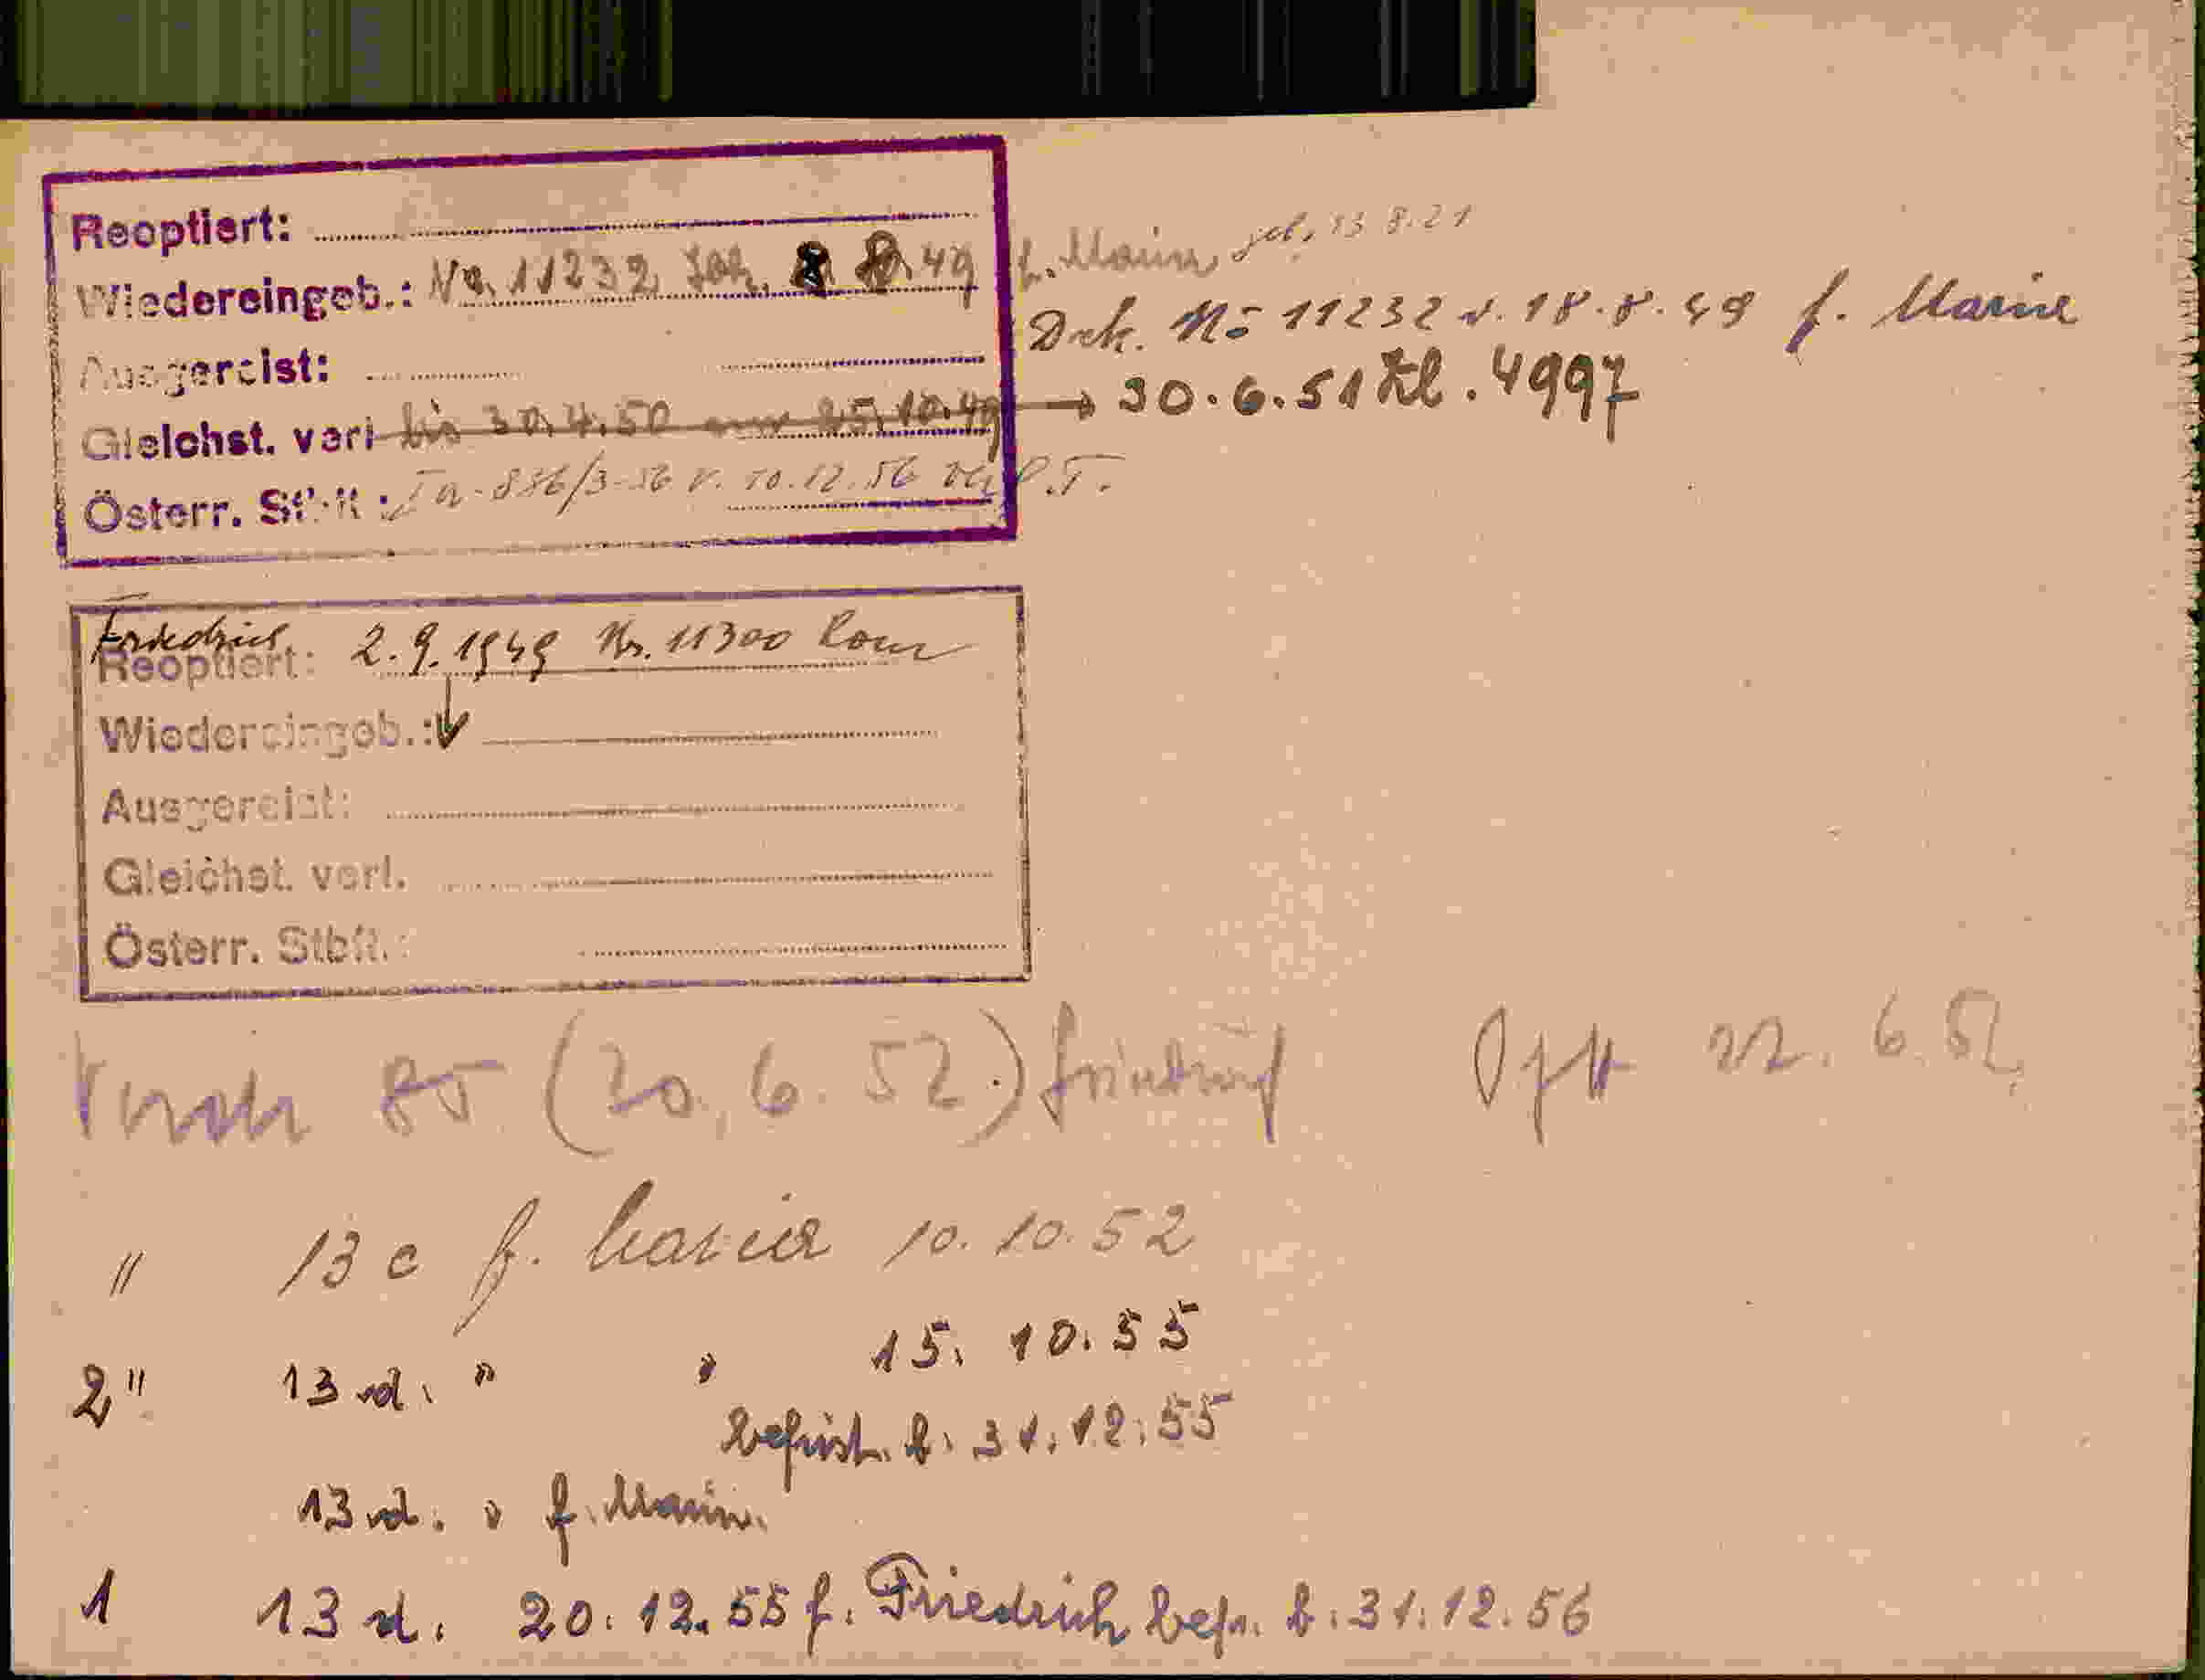 Reoptiert:
Wiedereingeb.: No. 11232 8. 49 f. Marie geb. 13 8.21
Dek. No 11232 v. 18.8.49 f. Marie
Ausgereist:
Gleichst. verl bis 30.4.50 25.10.49 → 30.6.51 Zl. 4997
Österr. Stbft.: Ia-886/3-56 v. 10.12.56
Friedrich
Reoptiert: 2.9.1949 Nr. 11300 Rom
Wiedereingeb.:
Ausgereist:
Gleichst. verl.
Österr. Stbft.:
(20.6.52) Friedrich 22.6.52
" 13 c f. Maria 10.10.52
2" 13 d. " " 15.10.55
befrist. b. 31.12.55
13 d. " f. Marie.
1 13 d. 20.12.55 f. Friedrich befr. b. 31.12.56